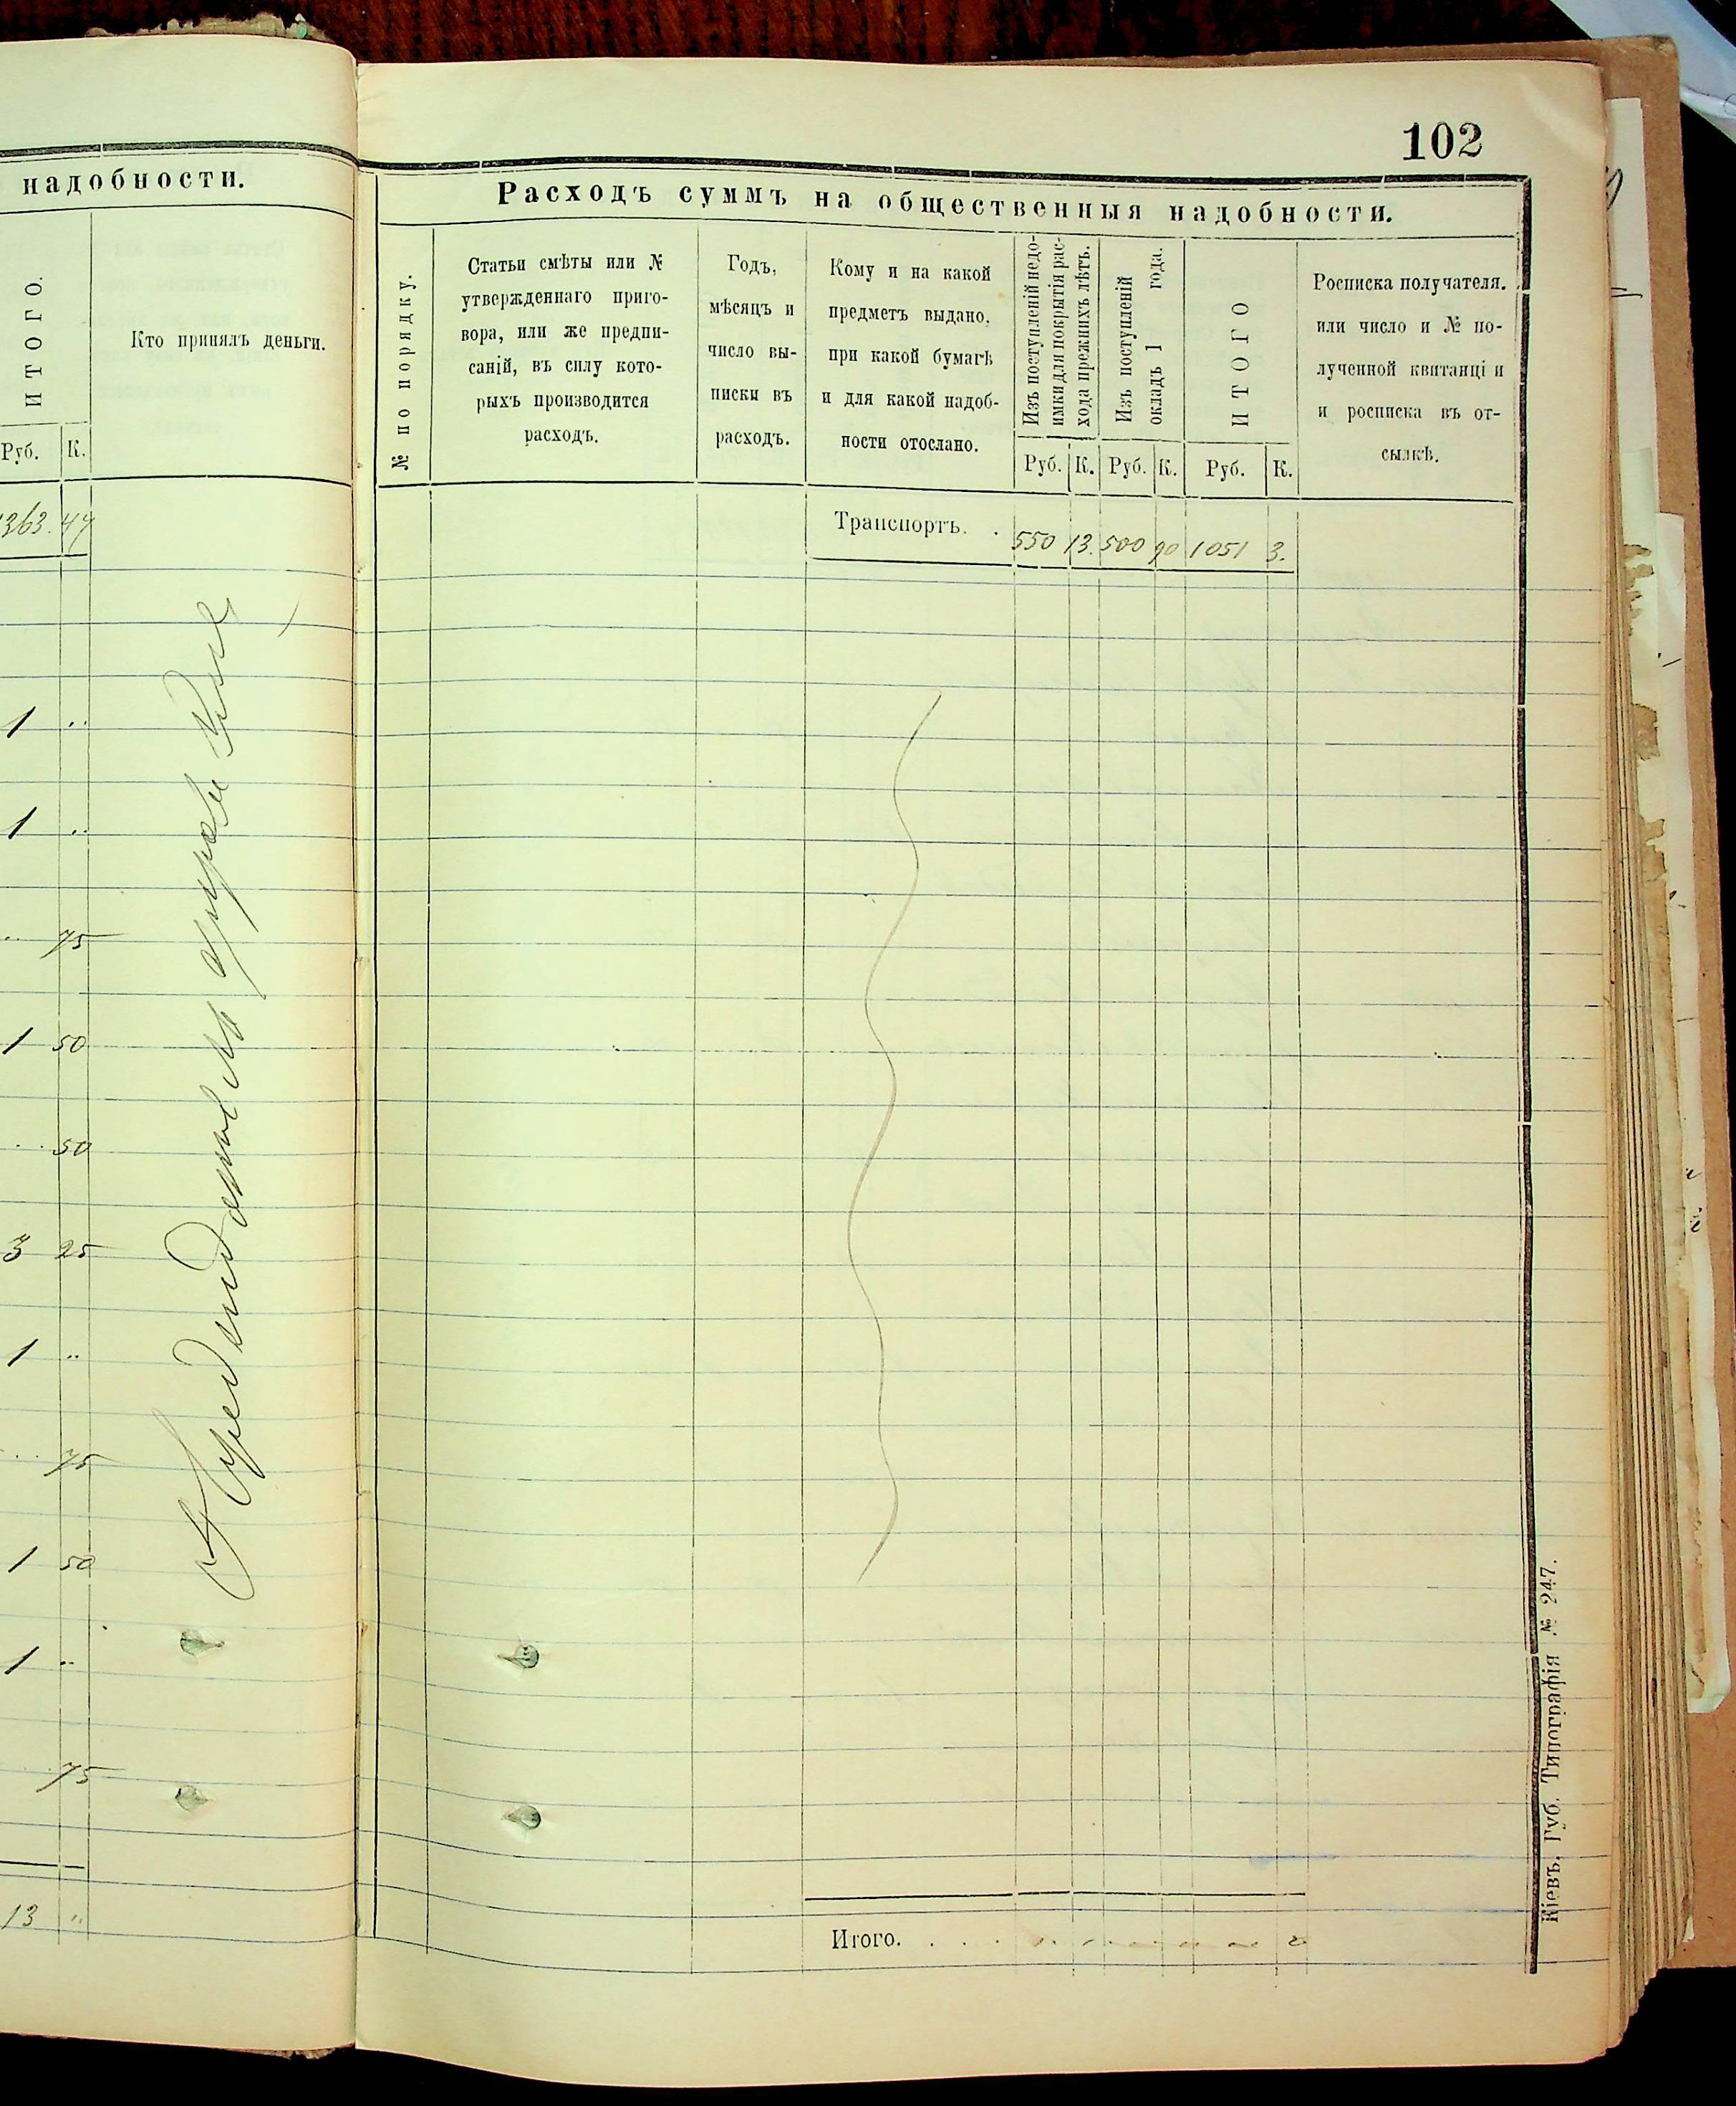 надобности.
ИТОГО.
Кто принялъ деньги.
Руб. К.
363. 44
1 ..
1 ..
.. 75
1 50
.. 50
3 25
1 ..
.. 75
1 50
1 ..
75
13 ..
102
Расходъ суммъ на общественныя надобности.
№ по порядку.
Статьи смѣты или №
утвержденнаго приго-
вора, или же предпи-
саній, въ силу кото-
рыхъ производится
расходъ.
Годъ,
мѣсяцъ и
число вы-
писки въ
расходъ.
Кому и на какой
предметъ выдано,
при какой бумагѣ
и для какой надоб-
ности отослано.
Изъ поступленій недо-
имки для покрытія рас-
хода прежнихъ лѣтъ.
Изъ поступленій
окладъ 1 года.
ИТОГО
Росписка получателя.
или число и № по-
лученной квитанціи
и росписка въ от-
сылкѣ.
Руб. К. Руб. К. Руб. К.
Транспортъ. . 550 13. 500 90 1051 3.
Итого. . . .
Кіевъ. Губ. Типографія № 247.